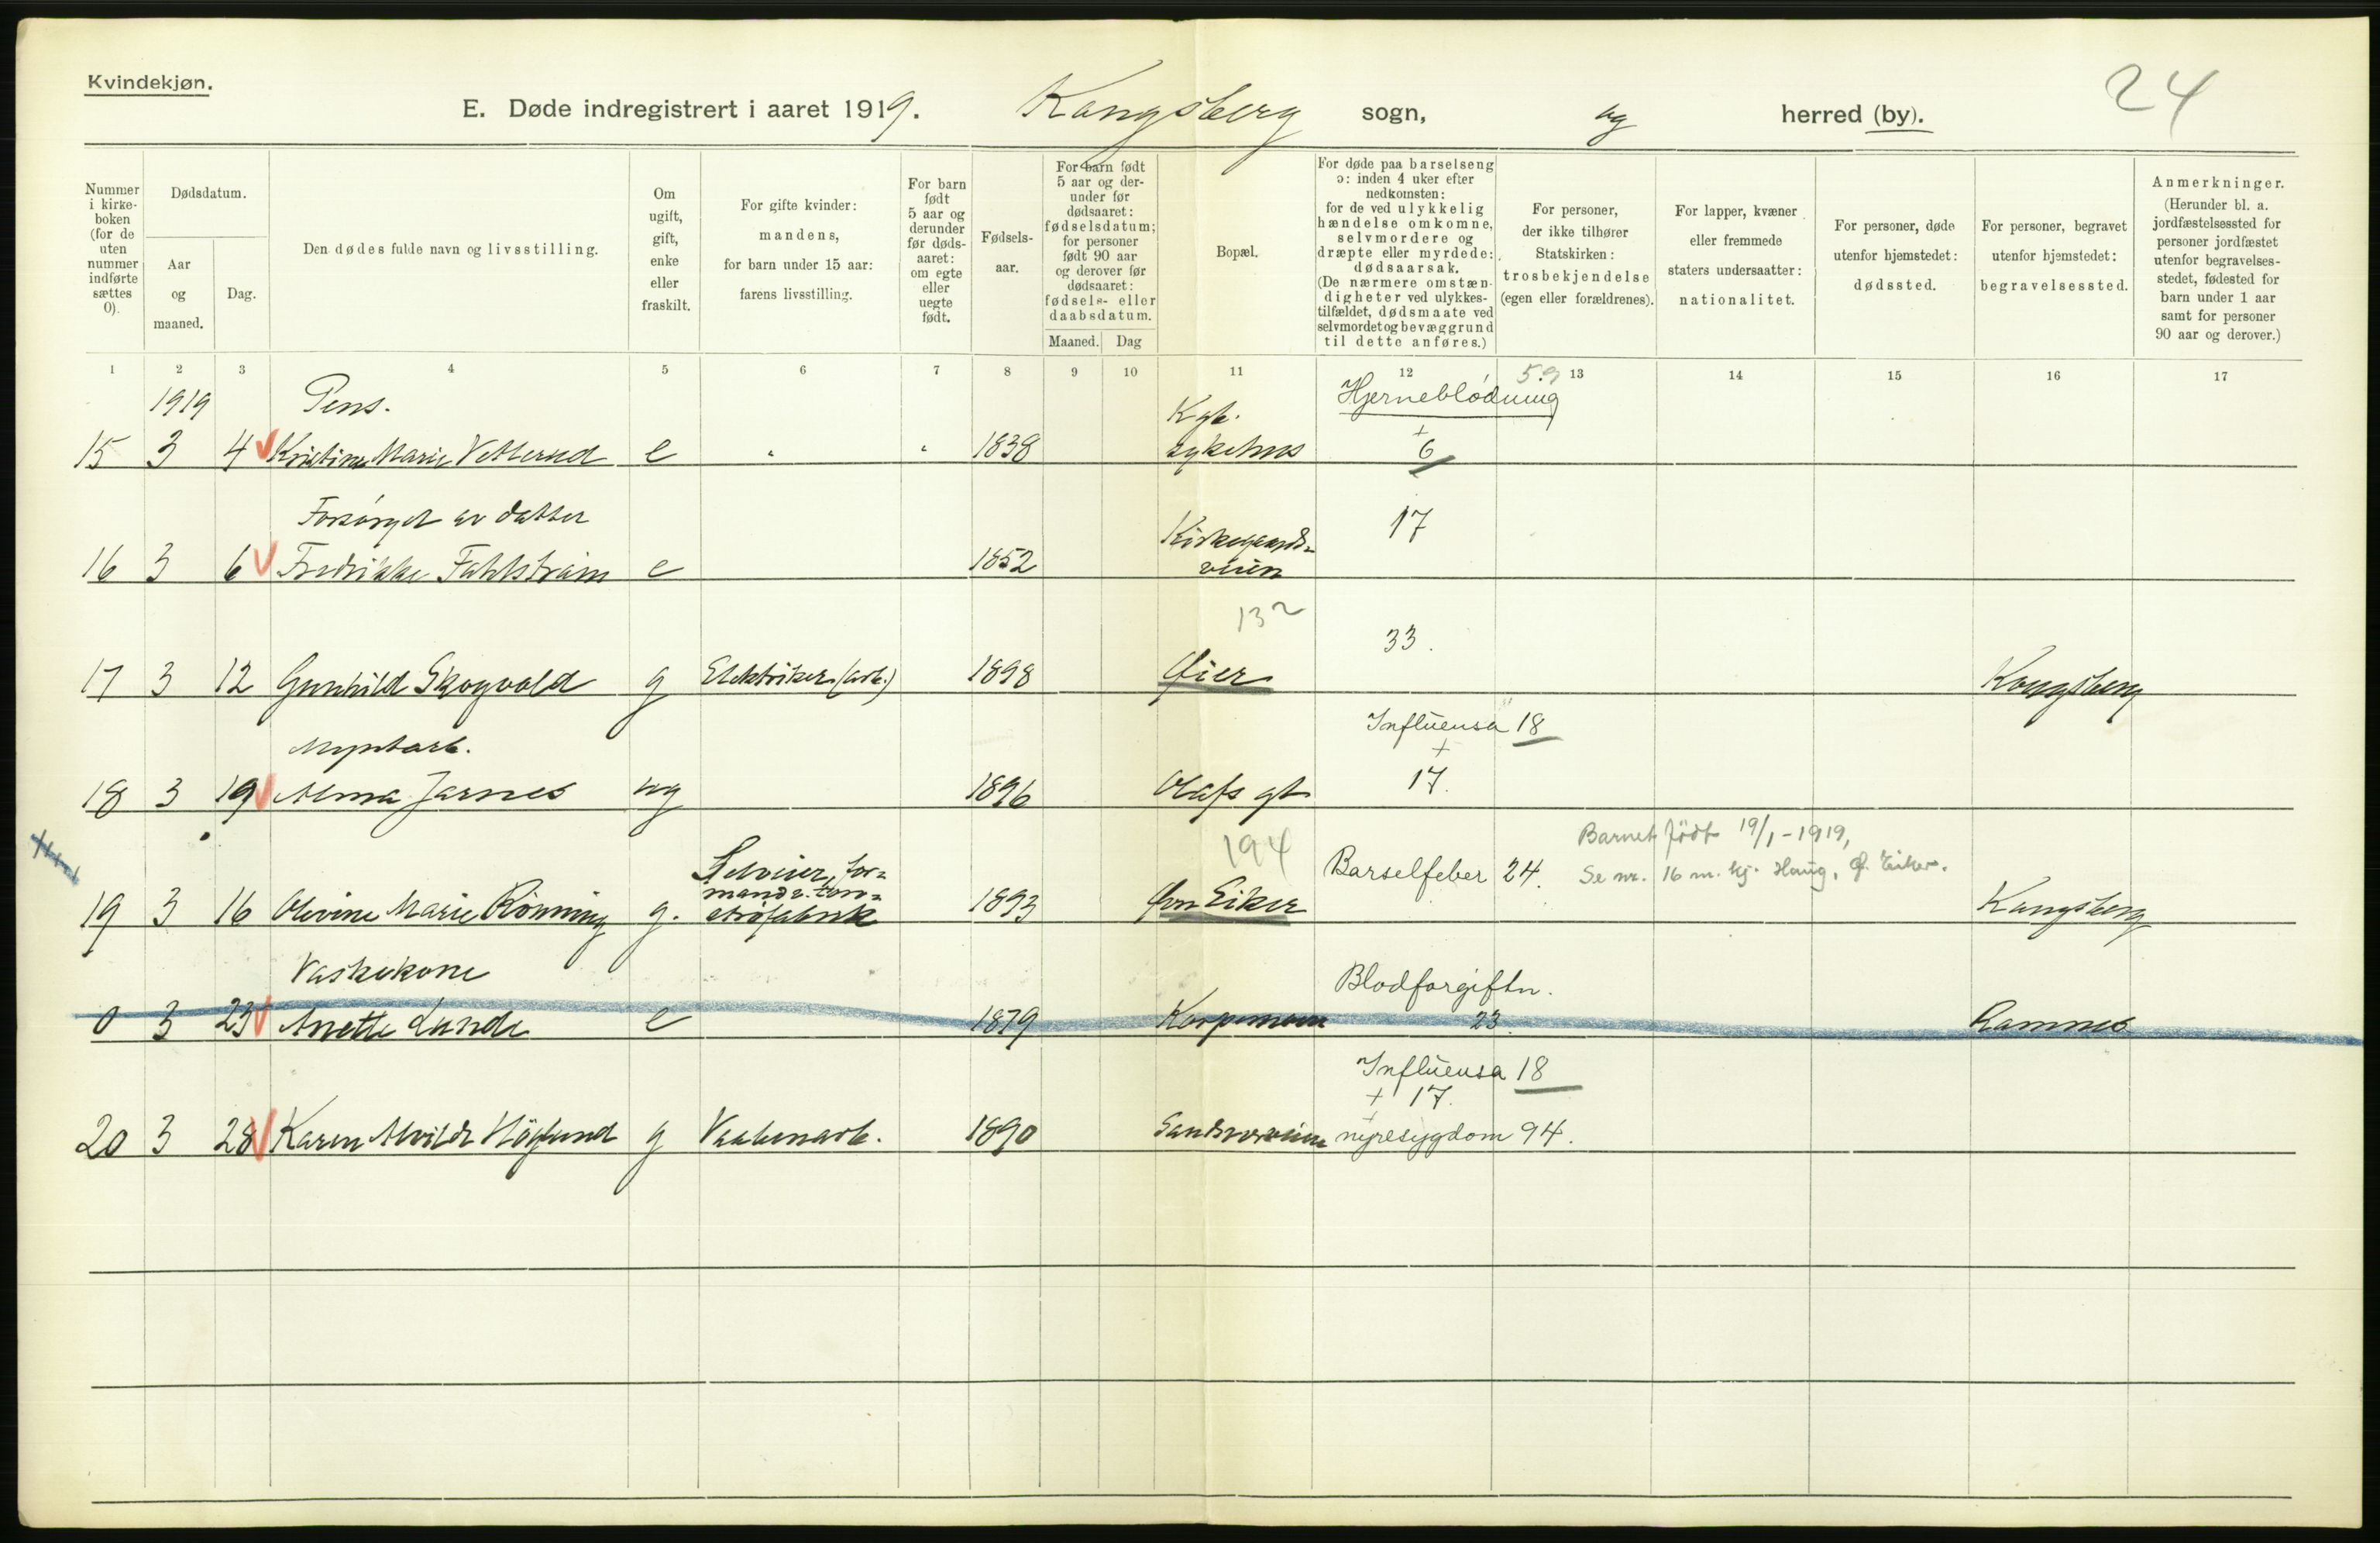 Kvindekjøn.
24
E. Døde indregistrert i aaret 1919. Kongsberg sogn, og herred (by).
Nummer i kirke- boken (for de uten nummer indførte sættes 0).
Dødsdatum.
Aar og maaned.
Dag.
Den dødes fulde navn og livsstilling.
Om ugift, gift, enke eller fraskilt.
For gifte kvinder: mandens, for barn under 15 aar: farens livsstilling.
For barn født 5 aar og derunder før døds- aaret: om egte eller uegte født.
Fødsels- aar.
For barn født 5 aar og der- under før dødsaaret: fødselsdatum; for personer født 90 aar og derover før dødsaaret: fødsels- eller daabsdatum.
Maaned. Dag
Bopæl.
For døde paa barselseng ɔ: inden 4 uker efter nedkomsten: for de ved ulykkelig hændelse omkomne, selvmordere og dræpte eller myrdede: dødsaarsak. (De nærmere omstæn- digheter ved ulykkes- tilfældet, dødsmaate ved selvmordet og bevæggrund til dette anføres.)
For personer, der ikke tilhører Statskirken: trosbekjendelse (egen eller forældrenes).
For lapper, kvæner eller fremmede staters undersaatter: nationalitet.
For personer, døde utenfor hjemstedet: dødssted.
For personer, begravet utenfor hjemstedet: begravelsessted.
Anmerkninger. (Herunder bl. a. jordfæstelsessted for personer jordfæstet utenfor begravelses- stedet, fødested for barn under 1 aar samt for personer 90 aar og derover.)
1 2 3 4 5 6 7 8 9 10 11 12 13 14 15 16 17
1919 Pens. Kgb. Hjerneblödning 59
15 3 4 Kristine Marie Vetterud e " " 1838 sykehus + 6
Forsörget av datter Kirkegaards- 17
16 3 6 Fredrikke Fahlström e 1852 veien
132 33.
17 3 12 Gunhild Skogvold g Elektriker (arb.) 1898 Øier Kongsberg
Myntarb. Influensa 18
+
18 3 19 Alma Jarnes ug 1896 Olafs gt 17.
194 Barnet födt 19/1-1919,
for- mand v. Barselfeber 24. Se nr. 16 m. kj. Haug, Ø. Eiker.
19 3 16 Olvine Marie Rönning g. 1893 Øvr Eiker Kongsberg
Vaskekone Blodforgiftn.
0 3 23 Anette Lunde e 1879 Korpemoen 23. Ramnes
Influensa 18
+ 17.
+
20 3 28 Karen Alvilde Höglund g Vaabenarb. 1890 Sandsværveien nyresygdom 94.